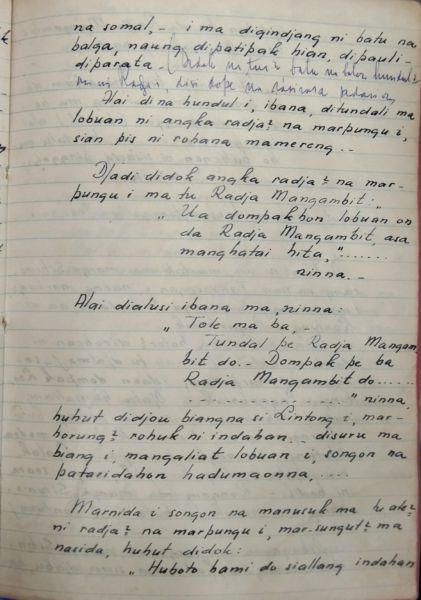 na somal, - i ma digindjang ni batu na
balga, naung dipatipak hian, dipauli-
diparata - (
ni radja i, disi dope na
Alai dina hundul i, ibana, ditundali ma
lobuan ni angka radja² na marpungu i,
sian pis ni rohana mamereng . -
Djadi didok angka radja² na mar-
pungu i ma tu Radja Mangambit: „
„ Ua dompakhon lobuan on
da Radja Mangambit, asa
manghatai hita, "......
ninna. -
Alai dialusi ibana ma, ninna:
„ Tole ma ba, -
Tundal pe Radja Mangam
bit do. - Dompak pe ba
Radja Mangambit do......
................... " ninna,
huhut didjou biangna si Lintong i, mar-
horung² rohuk ni indahan. . disuru ma
biang i, mangaliat lobuan i, songon na
pataridahon hadumaonna, ....
Marnida i songon na manusuk ma
ni radja² na marpungu i, mar-sungut² ma
nasida, huhut didok:
„ Huboto hami do siallang indahan